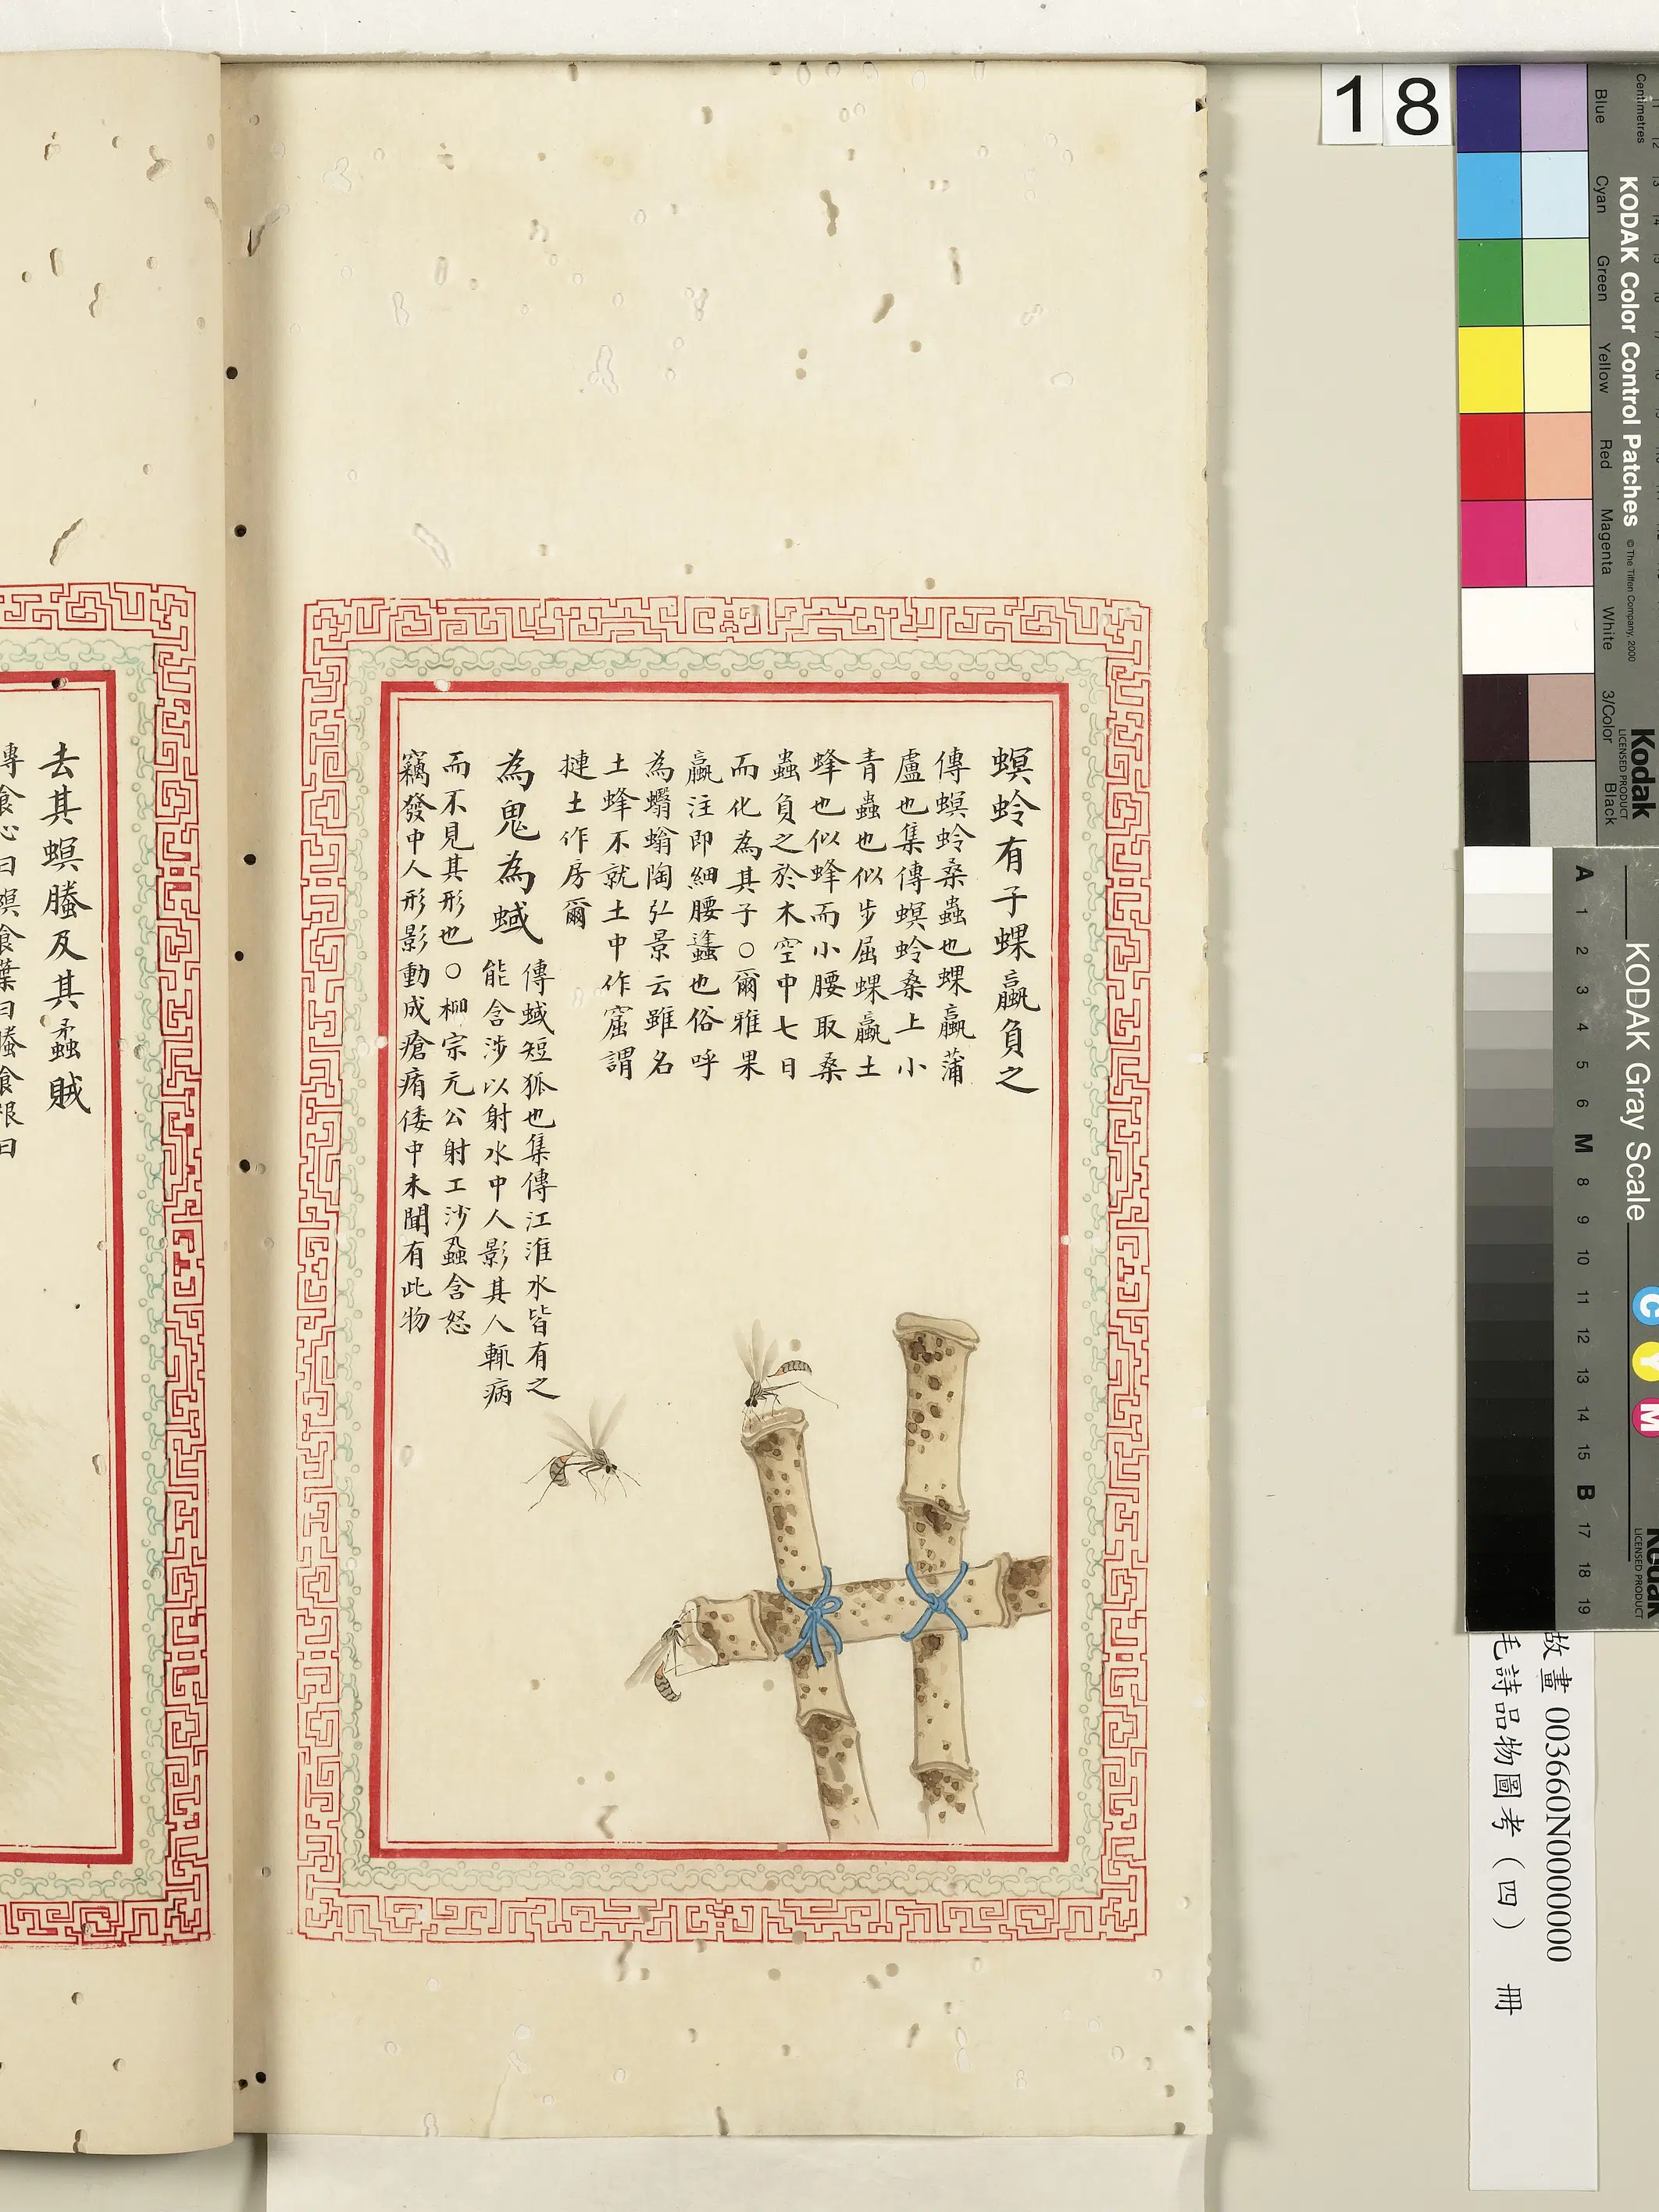 螟蛉有子蜾蠃負之
傳螟蛉桑蟲也蜾蠃蒲
盧也集傳螟蛉桑上小
青蟲也似步屈蜾蠃土
蜂也似蜂而小腰取桑
蟲負之於木空中七日
而化為其子○爾雅果
蠃注即細腰蠭也俗呼
為蠮螉陶弘景云雖名
土蜂不就土中作窟謂
摙土作房爾
為鬼為蜮
傳蜮短狐也集傳江淮水皆有之
能含沙以射水中人影其人輒病
而不見其形也○柳宗元公射工沙蝨含怒
竊發中人形影動成瘡痏倭中未聞有此物
去其螟螣及其蟊賊
傳食心曰螟食葉曰螣食根曰
18
Centimetres
KODAK Color Control Patches
© The Tiffen Company, 2000
Kodak
LICENSED PRODUCT
Blue
Cyan
Green
Yellow
Red
Magenta
White
3/Color
Black
KODAK Gray Scale
C
Y
M
Kodak
LICENSED PRODUCT
A 1 2 3 4 5 6 M 8 9 10 11 12 13 14 15 B 17 18 19
故畫 003660N000000000
毛詩品物圖考（四） 冊